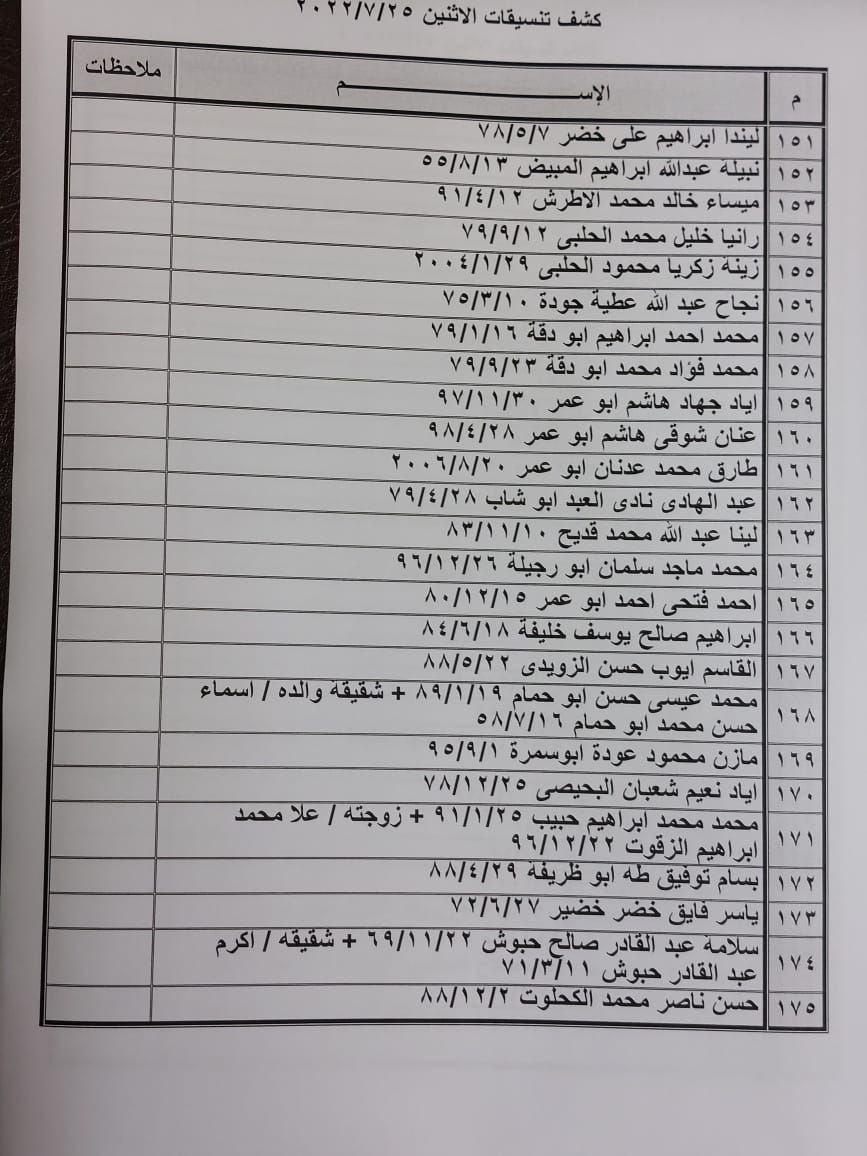 كشف تنسيقات الاثنين ٢٠٢٢/٧/٢٥
م الإســــــــم ملاحظات
١٥١ ليندا ابراهيم على خضر ٧٨/٥/٧
١٥٢ نبيلة عبدالله ابراهيم المبيض ٥٥/٨/١٣
١٥٣ ميساء خالد محمد الاطرش ٩١/٤/١٢
١٥٤ رانيا خليل محمد الحلبى ٧٩/٩/١٢
١٥٥ زينة زكريا محمود الحلبى ٢٠٠٤/١/٢٩
١٥٦ نجاح عبد الله عطية جودة ٧٥/٣/١٠
١٥٧ محمد احمد ابراهيم ابو دقة ٧٩/١/١٦
١٥٨ محمد فؤاد محمد ابو دقة ٧٩/٩/٢٣
١٥٩ اياد جهاد هاشم ابو عمر ٩٧/١١/٣٠
١٦٠ عنان شوقى هاشم ابو عمر ٩٨/٤/٢٨
١٦١ طارق محمد عدنان ابو عمر ٢٠٠٦/٨/٢٠
١٦٢ عبد الهادى نادى العبد ابو شاب ٧٩/٤/٢٨
١٦٣ لينا عبد الله محمد قديح ٨٣/١١/١٠
١٦٤ محمد ماجد سلمان ابو رجيلة ٩٦/١٢/٢٦
١٦٥ احمد فتحى احمد ابو عمر ٨٠/١٢/١٥
١٦٦ ابراهيم صالح يوسف خليفة ٨٤/٦/١٨
١٦٧ القاسم ايوب حسن الزويدى ٨٨/٥/٢٢
١٦٨ محمد عيسى حسن ابو حمام ٨٩/١/١٩ + شقيقة والده / اسماء
حسن محمد ابو حمام ٥٨/٧/١٦
١٦٩ مازن محمود عودة ابوسمرة ٩٥/٩/١
١٧٠ اياد نعيم شعبان البحيصى ٧٨/١٢/٢٥
١٧١ محمد محمد ابراهيم حبيب ٩١/١/٢٥ + زوجته / علا محمد
ابراهيم الزقوت ٩٦/١٢/٢٢
١٧٢ بسام توفيق طه ابو ظريفة ٨٨/٤/٢٩
١٧٣ ياسر فايق خضر خضير ٧٢/٦/٢٧
١٧٤ سلامة عبد القادر صالح حبوش ٦٩/١١/٢٢ + شقيقه / اكرم
عبد القادر حبوش ٧١/٣/١١
١٧٥ حسن ناصر محمد الكحلوت ٨٨/١٢/٢